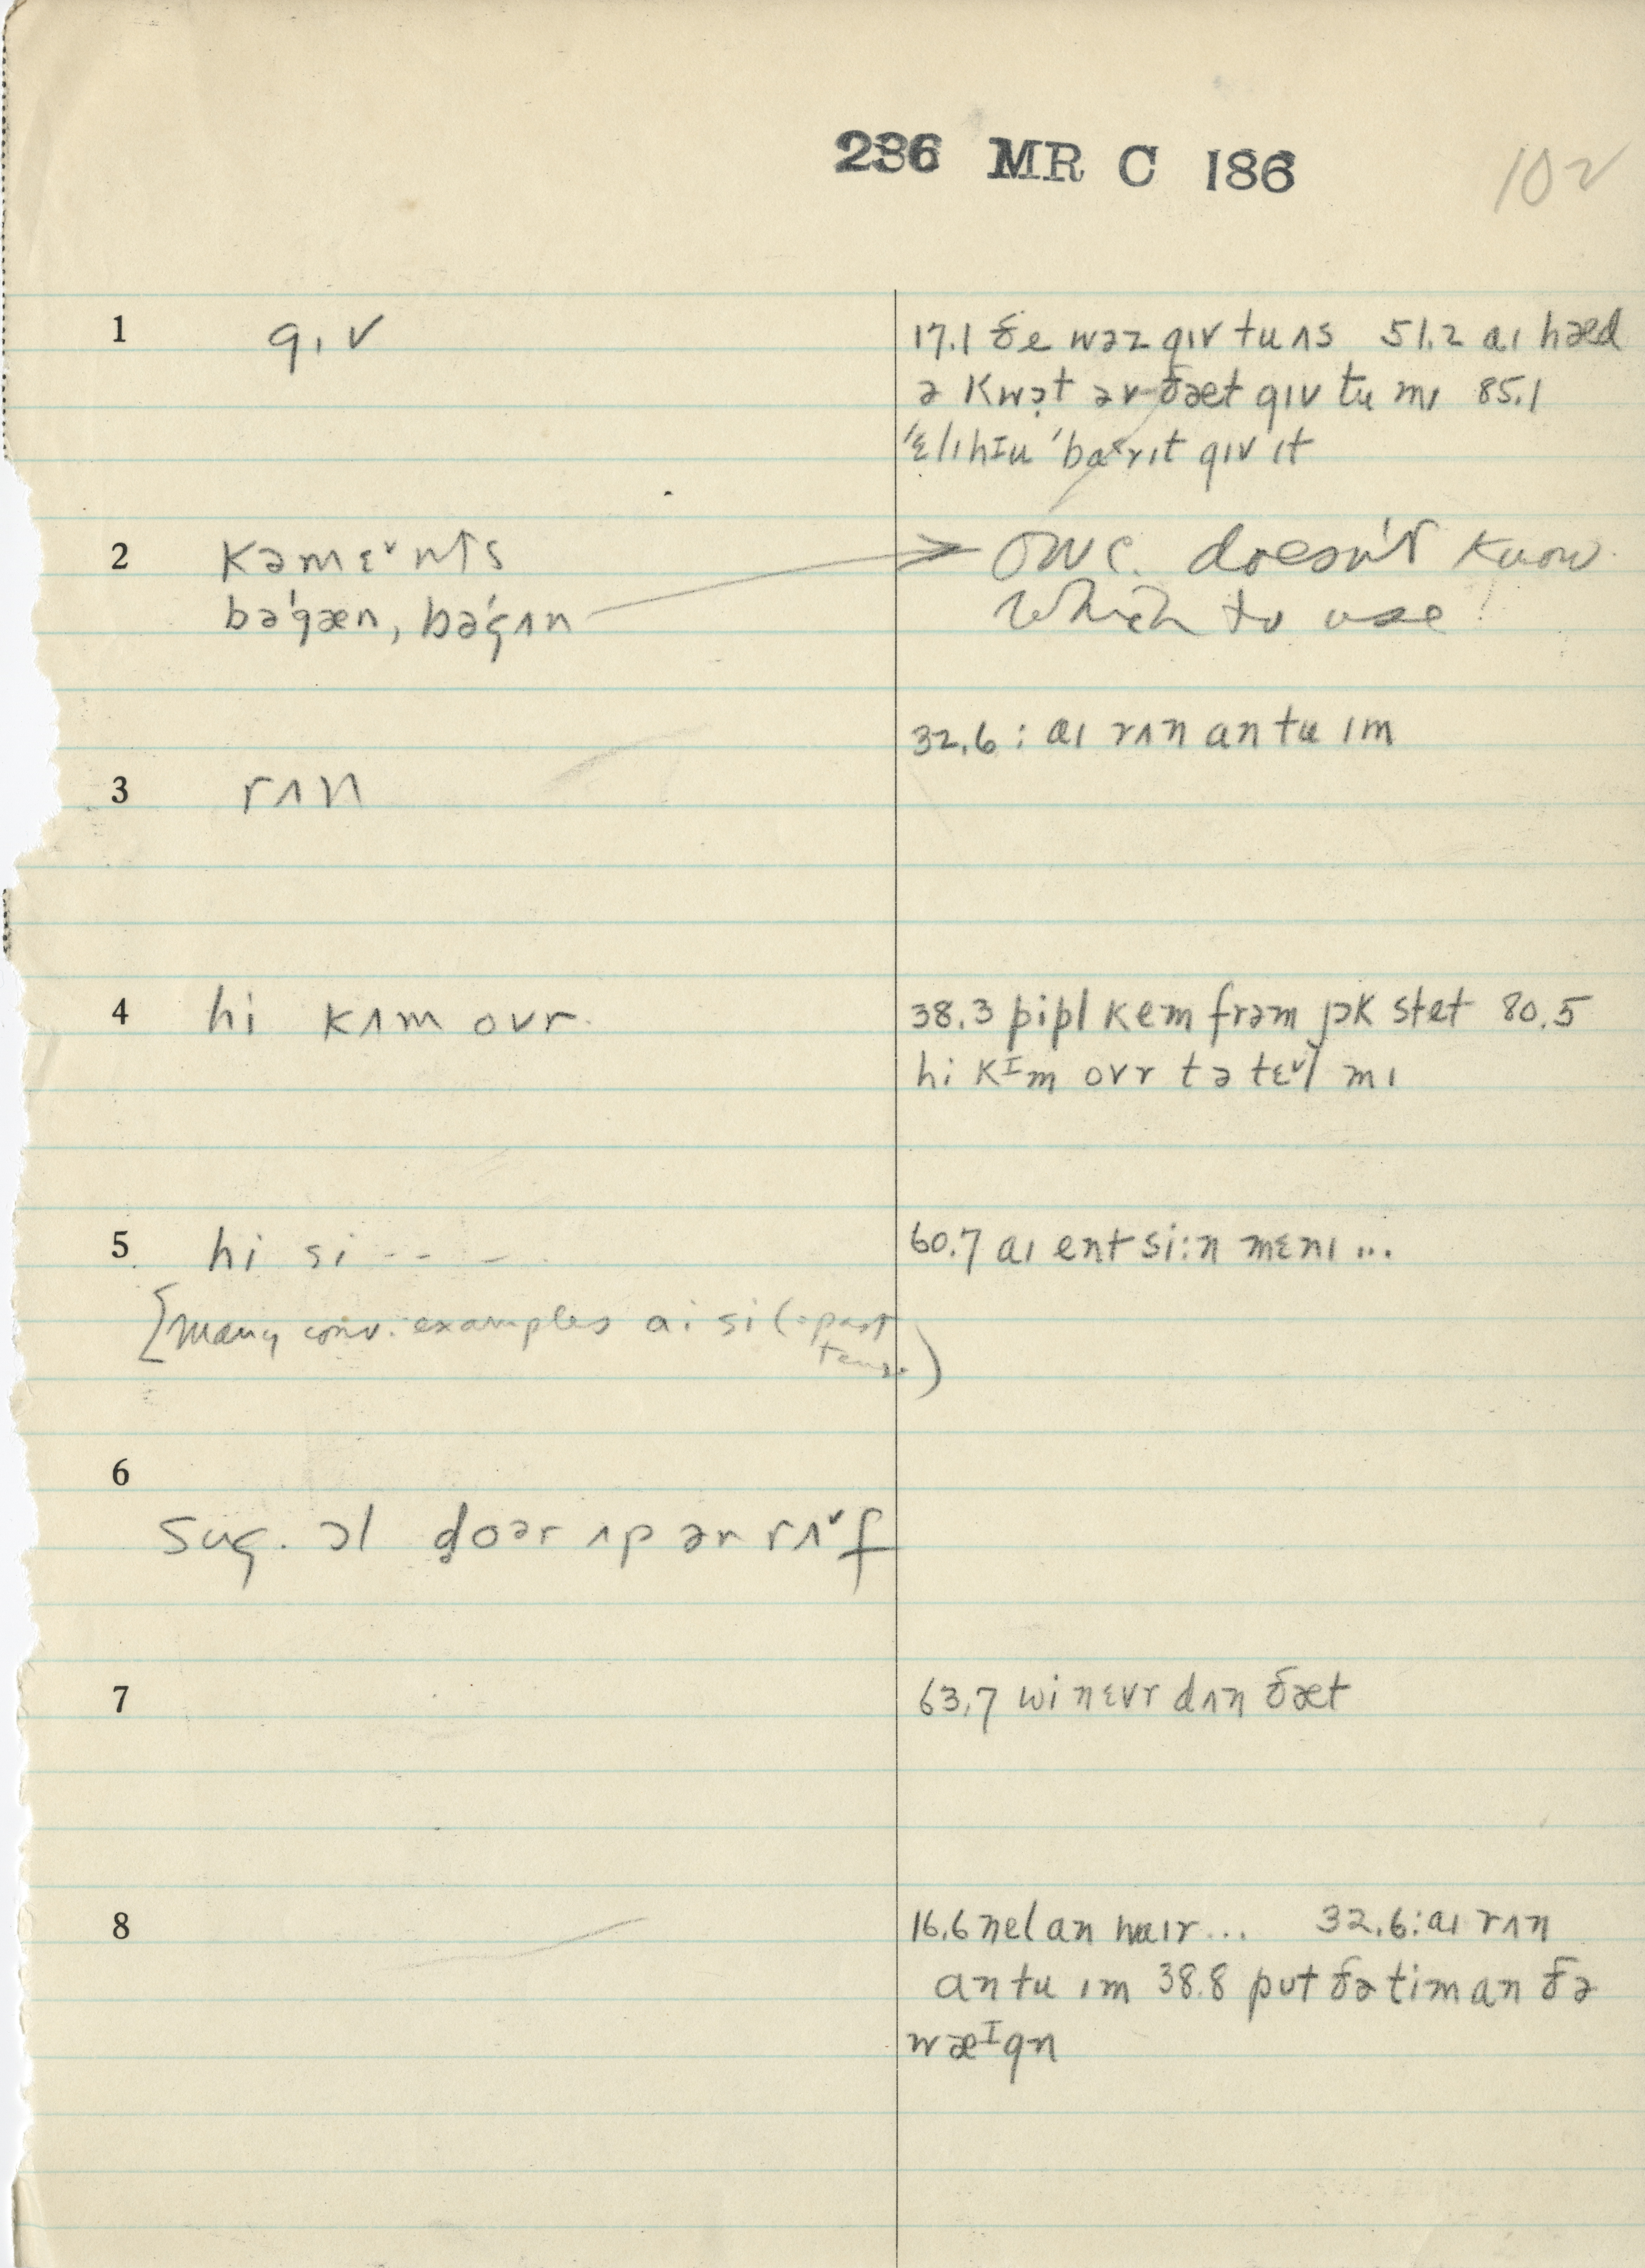 236 MR C 186
102
1 gɪv
17.1 ðe wəz gɪv tu ʌs 51.2 aɪ hæd
ə kwɔ̣t əv ðæt gɪv tu mɪ 85.1
'ɛlɪhɪu 'bærɪt gɪv ɪt
2 kəmɛ˅nts
bə'gæn, bə'gʌn
OWC. doesn't know
which to use!
32.6 : aɪ rʌn an tu ɪm
3 rʌn
4 hi kʌm ovr
38.3 pipl kem frəm jɔk stet 80.5
hi kɪm ovr tə tɛ˅l mɪ
5 hi si - - - -
60.7 aɪ ent si:n mɛnɪ ...
[many conv. examples aɪ si (=past
tense)
6
sug. ɔl ḍoər ʌp ər rʌ˅f
7
63.7 wi nɛvr dʌn ðæt
8
16.6 nel an waɪr... 32.6: aɪ rʌn
an tu ɪm 38.8 put ðə tim an ðə
wæɪgn